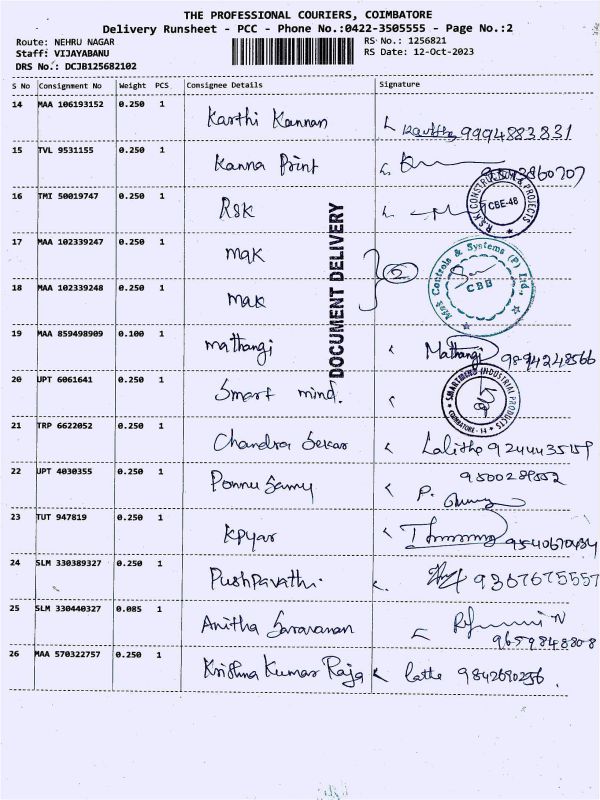 THE PROFESSIONAL COURIERS, COIMBATORE
Delivery Runsheet - PCC - Phone No.:0422-3505555 - Page No.:2
Route: NEHRU NAGAR RS No.: 1256821
Staff: VIJAYABANU RS Date: 12-Oct-2023
DRS No.: DCJB125682102
S No Consignment No Weight PCS Consignee Details Signature
14 MAA 106193152 0.250 1 Karthi Kannan 9994883831
15 TVL 9531155 0.250 1 Kanna Print
16 TMI 50019747 0.250 1 RSK
R.S.K CONSTRUCTION & PROJECTS
CBE-48
17 MAA 102339247 0.250 1 mak
2
18 MAA 102339248 0.250 1 mak
Mak Controls & Systems (P) Ltd.,
CBE
DOCUMENT DELIVERY
19 MAA 859498909 0.100 1 mathangi Mathangi 9894248566
20 UPT 6061641 0.250 1 Smart mind.
SMARTMIND INDUSTRIAL PRODUCTS
COIMBATORE - 14
21 TRP 6622052 0.250 1 Chandra Sekar Lalitha
22 UPT 4030355 0.250 1 Ponnu Samy P.
23 TUT 947819 0.250 1 Kpyar
24 SLM 330389327 0.250 1 Pushpavathi. 9367675557
25 SLM 330440327 0.085 1 Anitha Saravanan 9659848808
26 MAA 570322757 0.250 1 Krishna Kumar Raja latha 9842690256